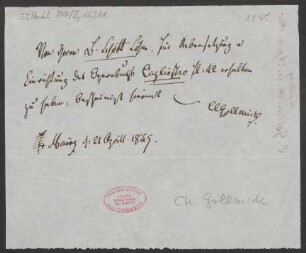 1845
Von Herrn B. Schott Söhne für Uebersetzung u
Einrichtung des Opernbuchs Cagliostro fl. 42 erhalten
zu haben, bescheinigt hiermit CGollmick
Mainz d. 21 April 1845.
Ch. Gollmick